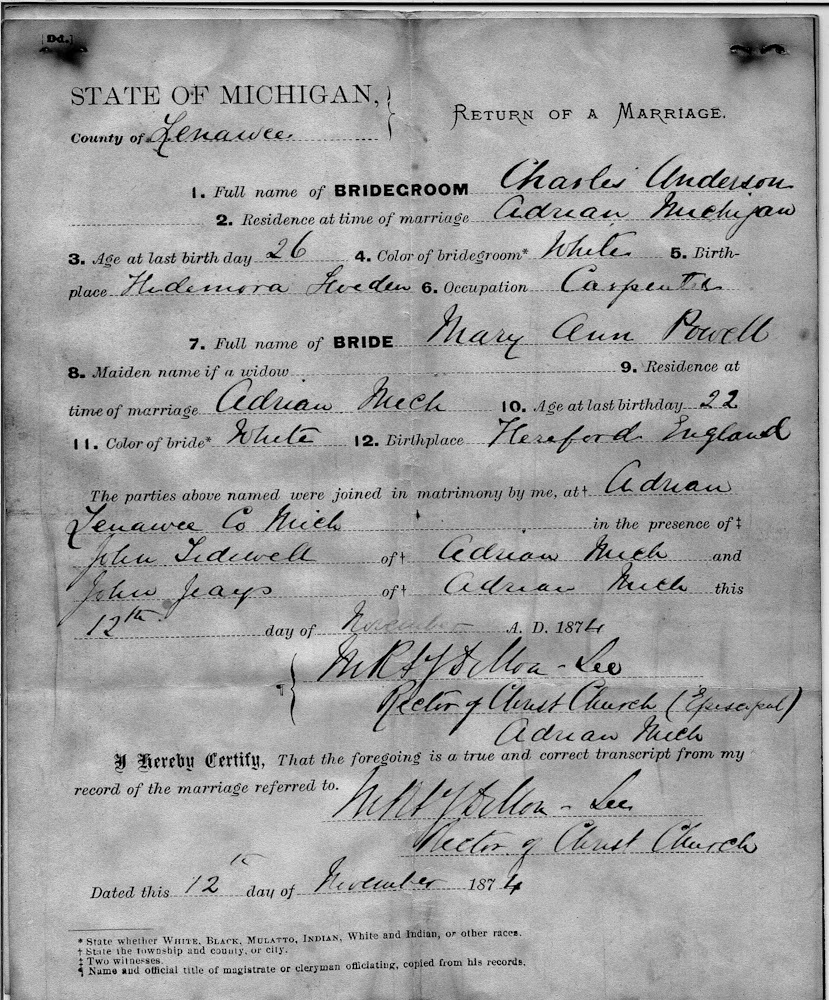 [Dd.]
STATE OF MICHIGAN,
County of Lenawee
RETURN OF A MARRIAGE.
1. Full name of BRIDEGROOM Charles Anderson
2. Residence at time of marriage Adrian, Michigan
3. Age at last birthday 26 4. Color of bridegroom* White 5. Birth-
place Hedemora Sweden 6. Occupation Carpenter
7. Full name of BRIDE Mary Ann Powell
8. Maiden name if a widow 9. Residence at
time of marriage Adrian Mich 10. Age at last birthday 22
11. Color of bride* White 12. Birthplace Hereford England
The parties above named were joined in matrimony by me, at† Adrian
Lenawee Co Mich in the presence of‡
John Tidswell of† Adrian Mich and
John Jeays of† Adrian Mich this
12th day of November A. D. 1874
¶ Lee
Rector of Christ Church (Episcopal)
Adrian Mich
I Hereby Certify, That the foregoing is a true and correct transcript from my
record of the marriage referred to.
Lee
Rector of Christ Church
Dated this 12th day of November 1874
* State whether WHITE, BLACK, MULATTO, INDIAN, White and Indian, or other races.
† State the township and county, or city.
‡ Two witnesses.
¶ Name and official title of magistrate or cleryman officiating, copied from his records.